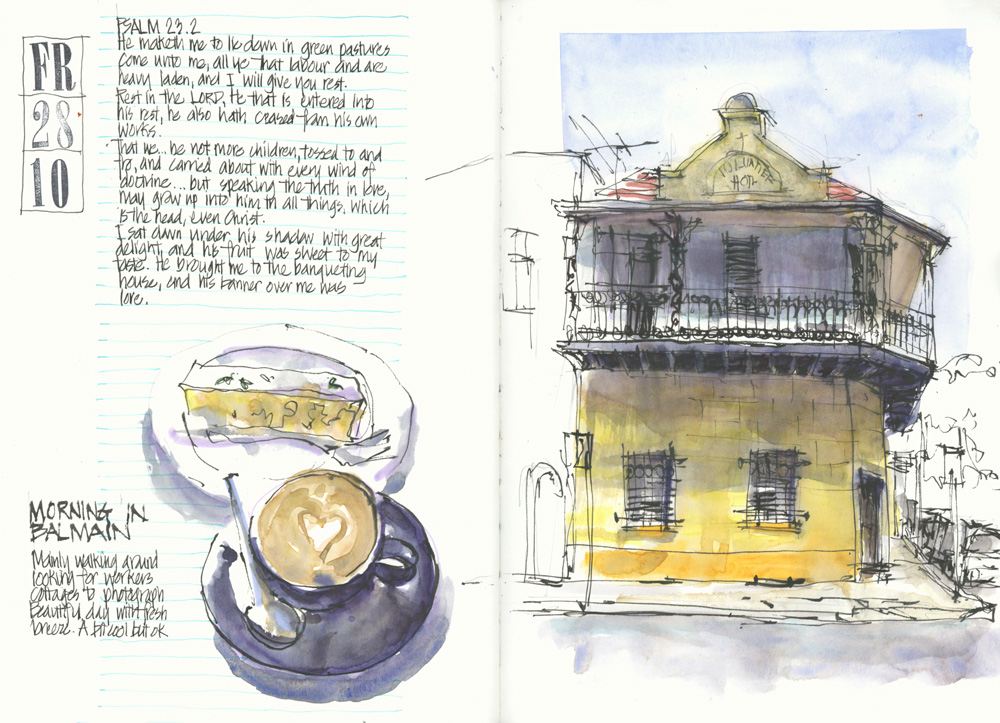 FR
28
10
PSALM 23.2
He maketh me to lie down in green pastures
come unto me, all ye that labour and are
heavy laden, and I will give you rest.
Rest in the LORD, He that is entered into
his rest, he also hath ceased from his own
works.
That we... be not more children, tossed to and
fro, and carried about with every wind of
doctrine... but speaking the truth in love,
may grow up into him in all things, which
is the head, even Christ.
I sat down under his shadow with great
delight, and his fruit was sweet to my
taste. He brought me to the banqueting
house, and his banner over me was
love.
MORNING IN
BALMAIN
Mainly walking around
looking for workers
cottages to photograph
Beautiful day with fresh
breeze. A bit cool but ok
HOTL